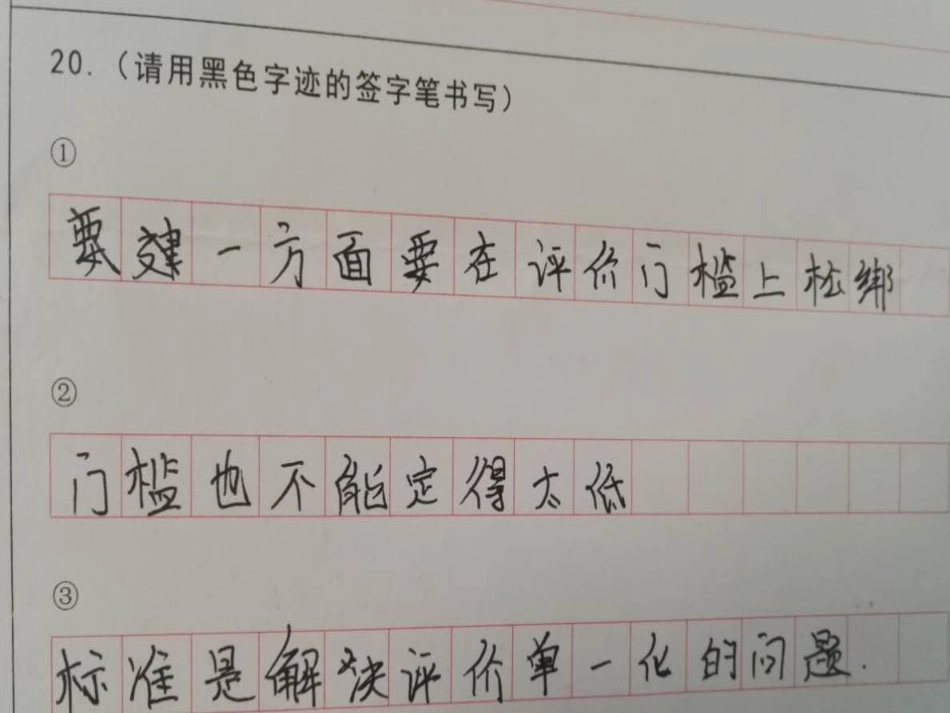 20.(请用黑色字迹的签字笔书写)
①
要建一方面要在评价门槛上松绑
②
门槛也不能定得太低
③
标准是解决评价单一化的问题.